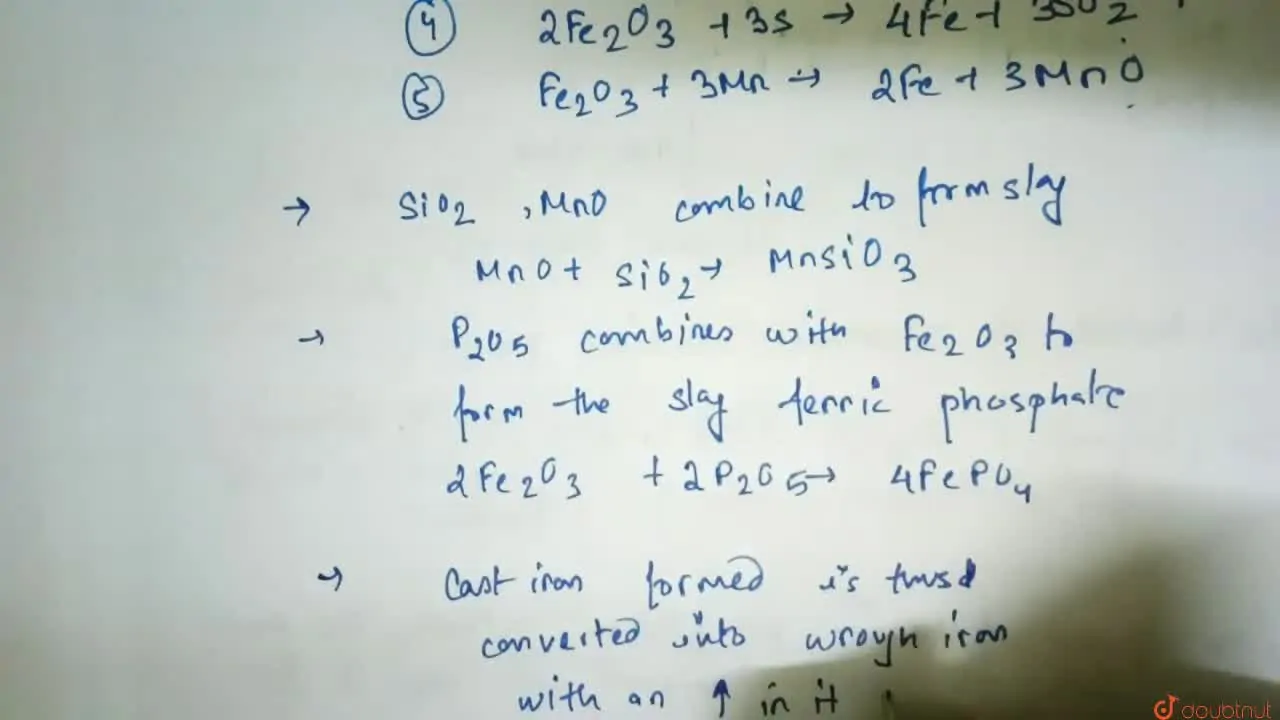 ④ 2Fe2O3 + 3S → 4Fe + 3SO2
⑤ Fe2O3 + 3Mn → 2Fe + 3MnO
→ SiO2 , MnO combine to form slag
MnO + SiO2 → MnSiO3
→ P2O5 combines with Fe2O3 to
form the slag ferric phosphate
2Fe2O3 + 2P2O5 → 4FePO4
→ Cast iron formed is thus
converted into wrough iron
with an ↑ in it
doubtnut